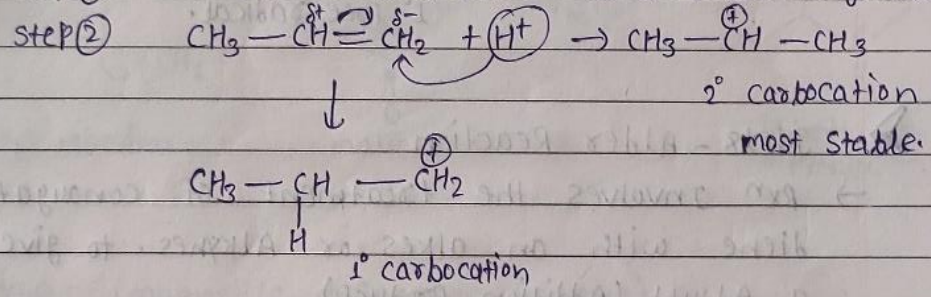 step ② CH₃ — CH = CH₂ + H⁺ → CH₃ — CH — CH₃
δ+ δ- ⊕
2° carbocation
most stable.
↓
⊕
CH₃ — CH — CH₂
|
H
1° carbocation